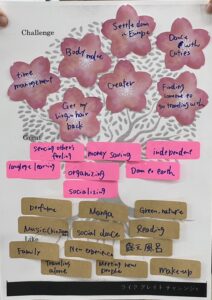 Challenge
Settle down
in Europe
Dance
with
Cuties
Body make
time
management
Creater
Finding
someone to
go traveling with
Get my
virgin hair
back
Great
sensing other's
feeling
money saving
independent
language learning
organizing
Down to earth
socializing
perfume
Manga
Green, nature
Music
social dance
Reading
Like
Family
New experience
露天風呂
Traveling
alone
Meeting new
people
make-up
ライクグレットチャレンジ